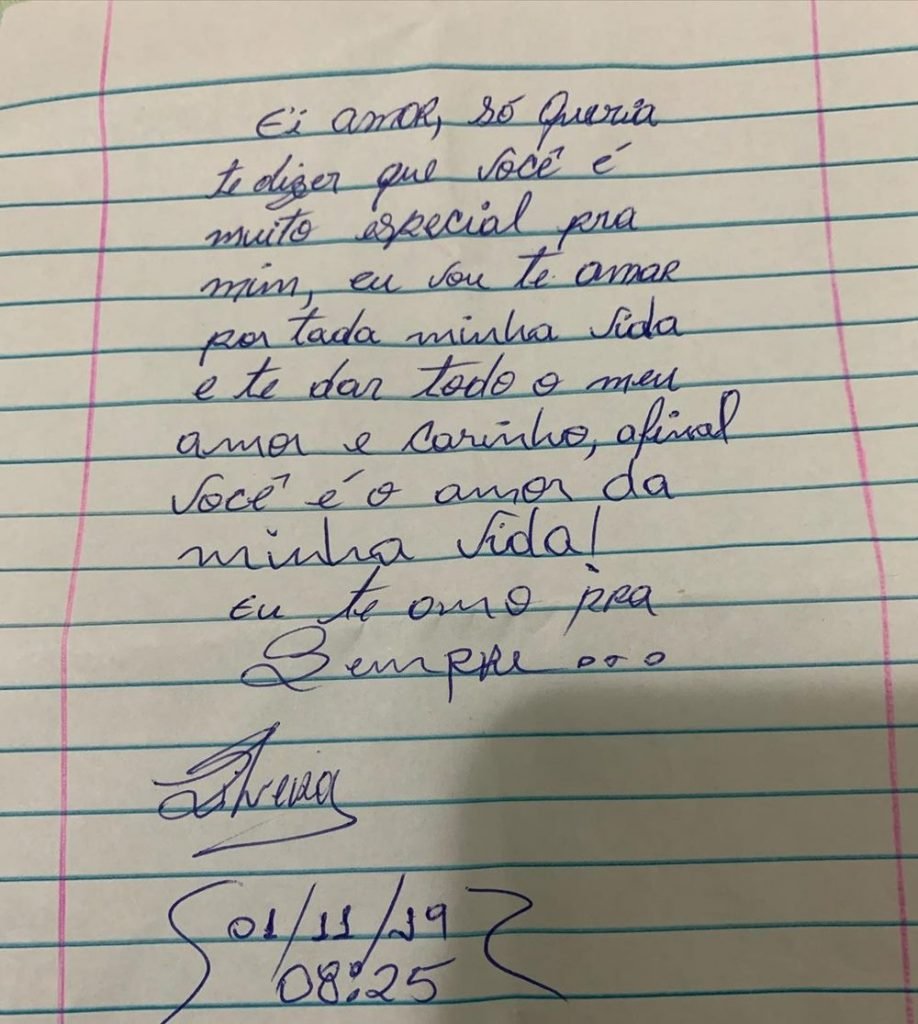 Ei amor, só queria
te dizer que você é
muito especial pra
mim, eu vou te amar
por toda minha vida
e te dar todo o meu
amor e carinho, afinal
você é o amor da
minha vida!
Eu te amo pra
Sempre...
01/11/19
08:25